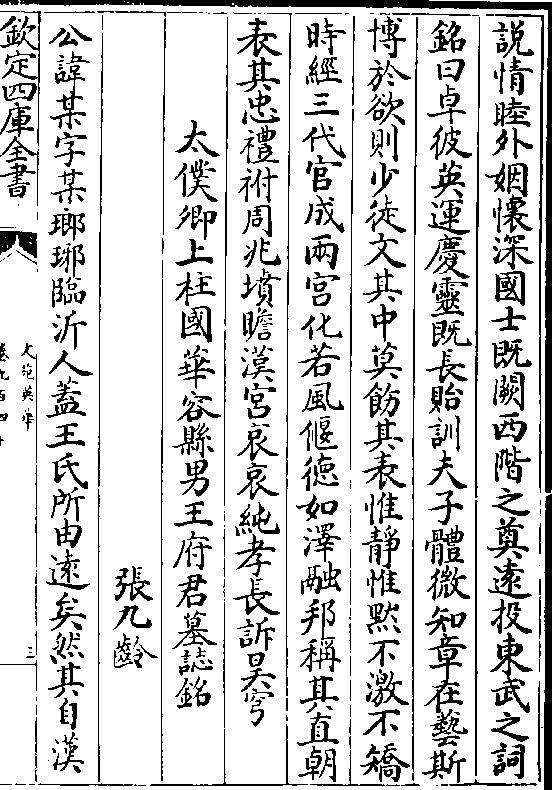 說情睦外姻懷深國士既闕西階之奠遠投東武之詞
銘曰卓彼英運慶靈既長貽訓夫子體微知章在藝斯
博於欲則少徒文其中莫飭其表惟靜惟默不激不矯
時經三代官成兩宫化若風偃德如澤融邦稱其直朝
表其忠禮祔周兆墳瞻漢宮哀哀純孝長訴昊穹
太僕卿上柱國華容縣男王府君墓誌銘
張九齡
公諱某字某瑯琊臨沂人蓋王氏所由遠矣然其自漢
欽定四庫全書
文苑英華
卷九百四十
三